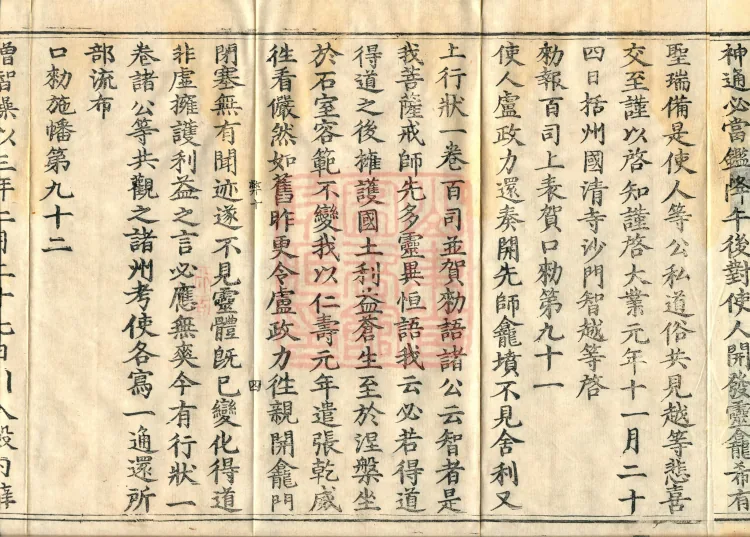 神通必當鑑降午後對使人開發靈龕希有
聖瑞備是使人等公私道俗共見越等悲喜
交至謹以啓知謹啓大業元年十一月二十
四日括州國清寺沙門智越等啓
勑報百司上表賀口勑第九十一
使人盧政力還奏開先師龕墳不見舍利又
上行狀一卷百司並賀勑語諸公云智者是
我菩薩戒師先多靈異恒語我云必若得道
得道之後擁護國土利益蒼生至於涅槃坐
於石室容範不變我以仁壽元年遣張乾威
往看儼然如舊昨更令盧政力往親開龕門
閉塞無有聞迹遂不見靈體旣已變化得道
非虛擁護利益之言必應無爽今有行狀一
卷諸公等共觀之諸州考使各寫一通還所
部流布
口勑施幡第九十二
僧智璪以三年二月二十七日引入殿內
四